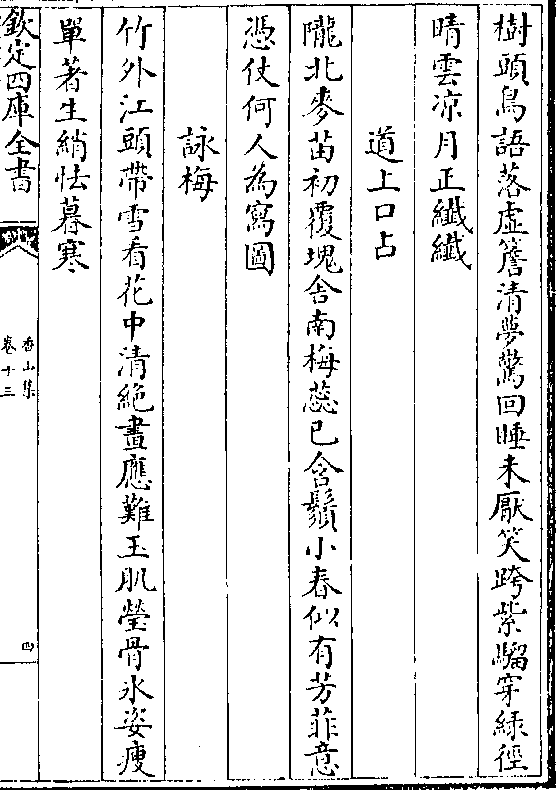 樹頭鳥語落虚簷清夢驚回睡未厭笑跨紫騮穿緑徑
晴雲凉月正纎纎
道上口占
隴北麥苗初覆塊舍南梅蕊已含鬚小春似有芳菲意
憑仗何人為寫圖
詠梅
竹外江頭帶雪看花中清絶畫應難玉肌瑩骨氷姿瘦
單著生綃怯暮寒
欽定四庫全書
香山集
卷十三
四